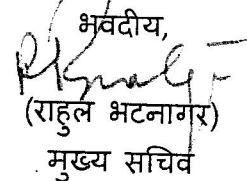 भवदीय,
(राहुल भटनागर)
मुख्य सचिव